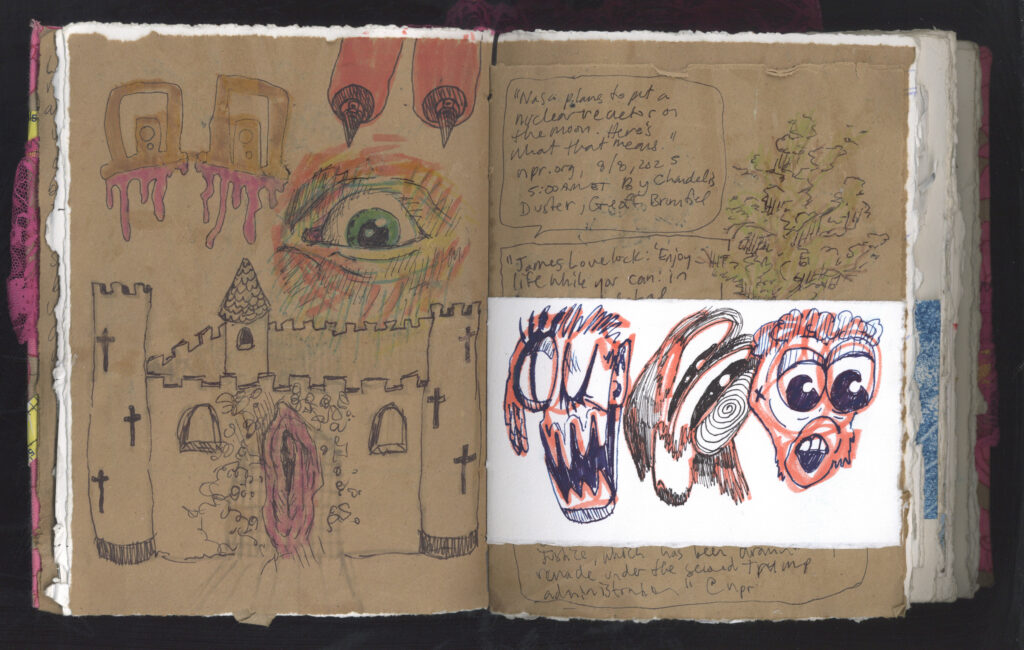 "Nasa plans to put a
nuclear reactor on
the moon. Here's
what that means."
npr.org, 8/8, 2025
5:00AM ET By Chandelis
Duster, Geoff Brumfiel
"James Lovelock: 'Enjoy
life while you can: in
Justice, which has been
remade under the second trump
administration" (npr